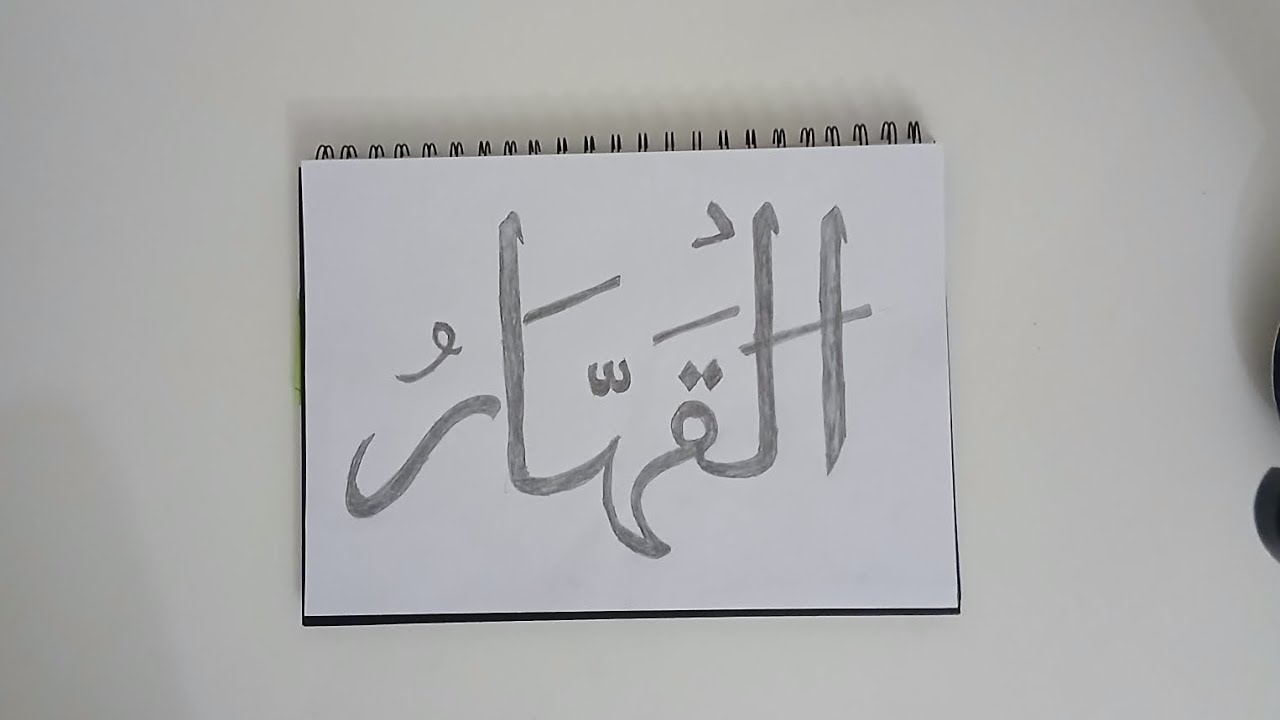 الْقَهَّارُ